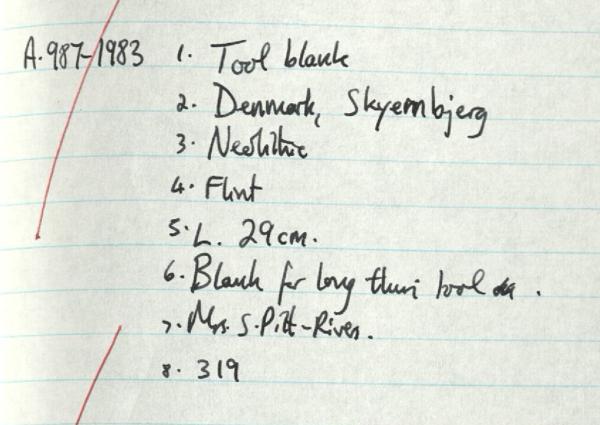 A.987-1983 1. Tool blank
2. Denmark, Skyernbjerg
3. Neolithic
4. Flint
5. L. 29cm.
6. Blank for long thin tool .
7. Mrs. S. Pitt-Rivers.
8. 319